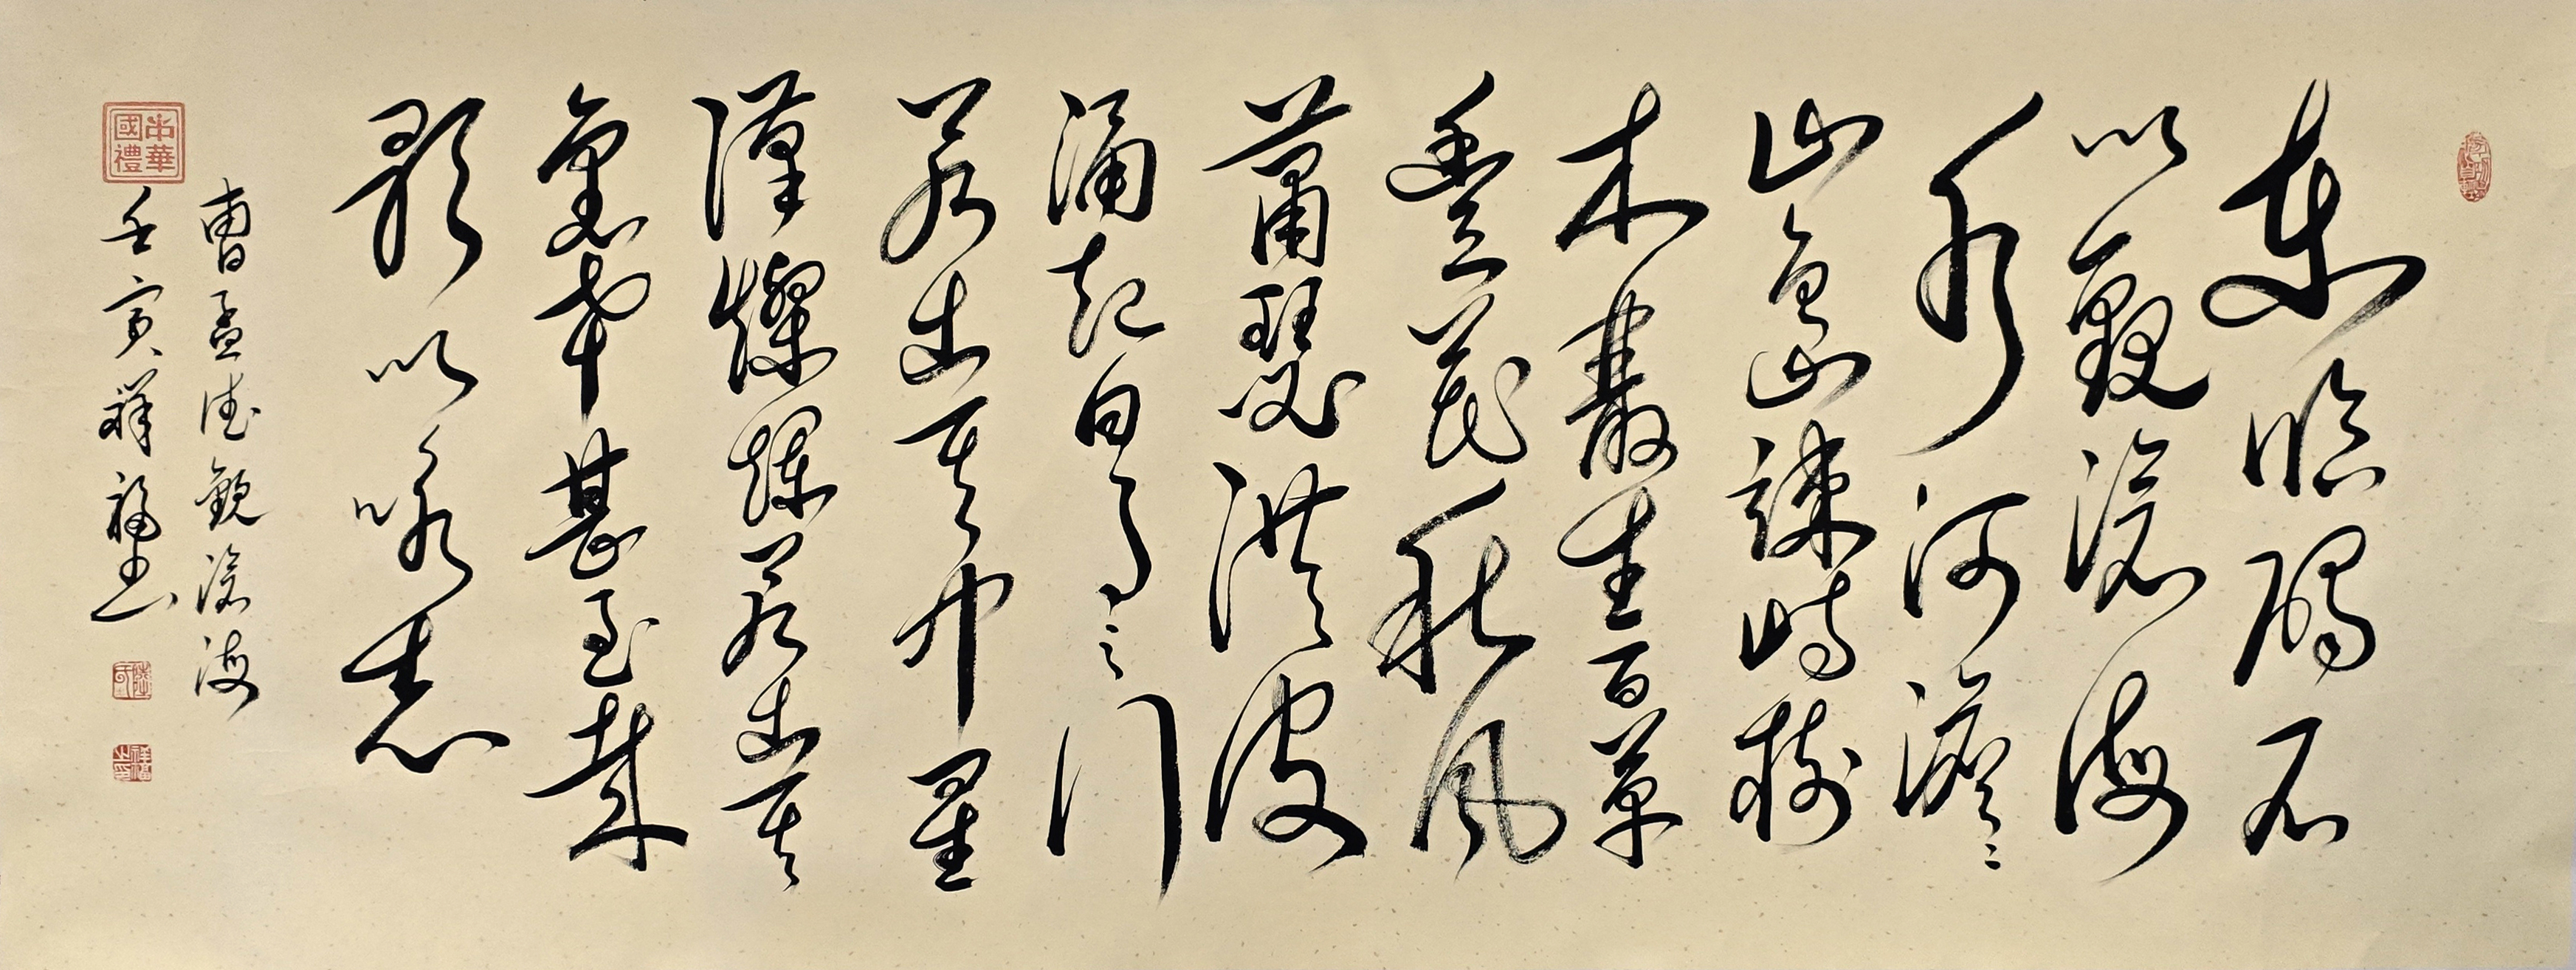 東臨碣石
以觀滄海
水河澹〻
山島竦峙樹
木叢生百草
豐茂秋風
蕭瑟洪波
涌起日月之行
若出其中星
漢燦爛若出其
裏幸甚至哉
歌以咏志
曹孟德觀滄海
中華國禮
壬寅祥福書
祥福之印